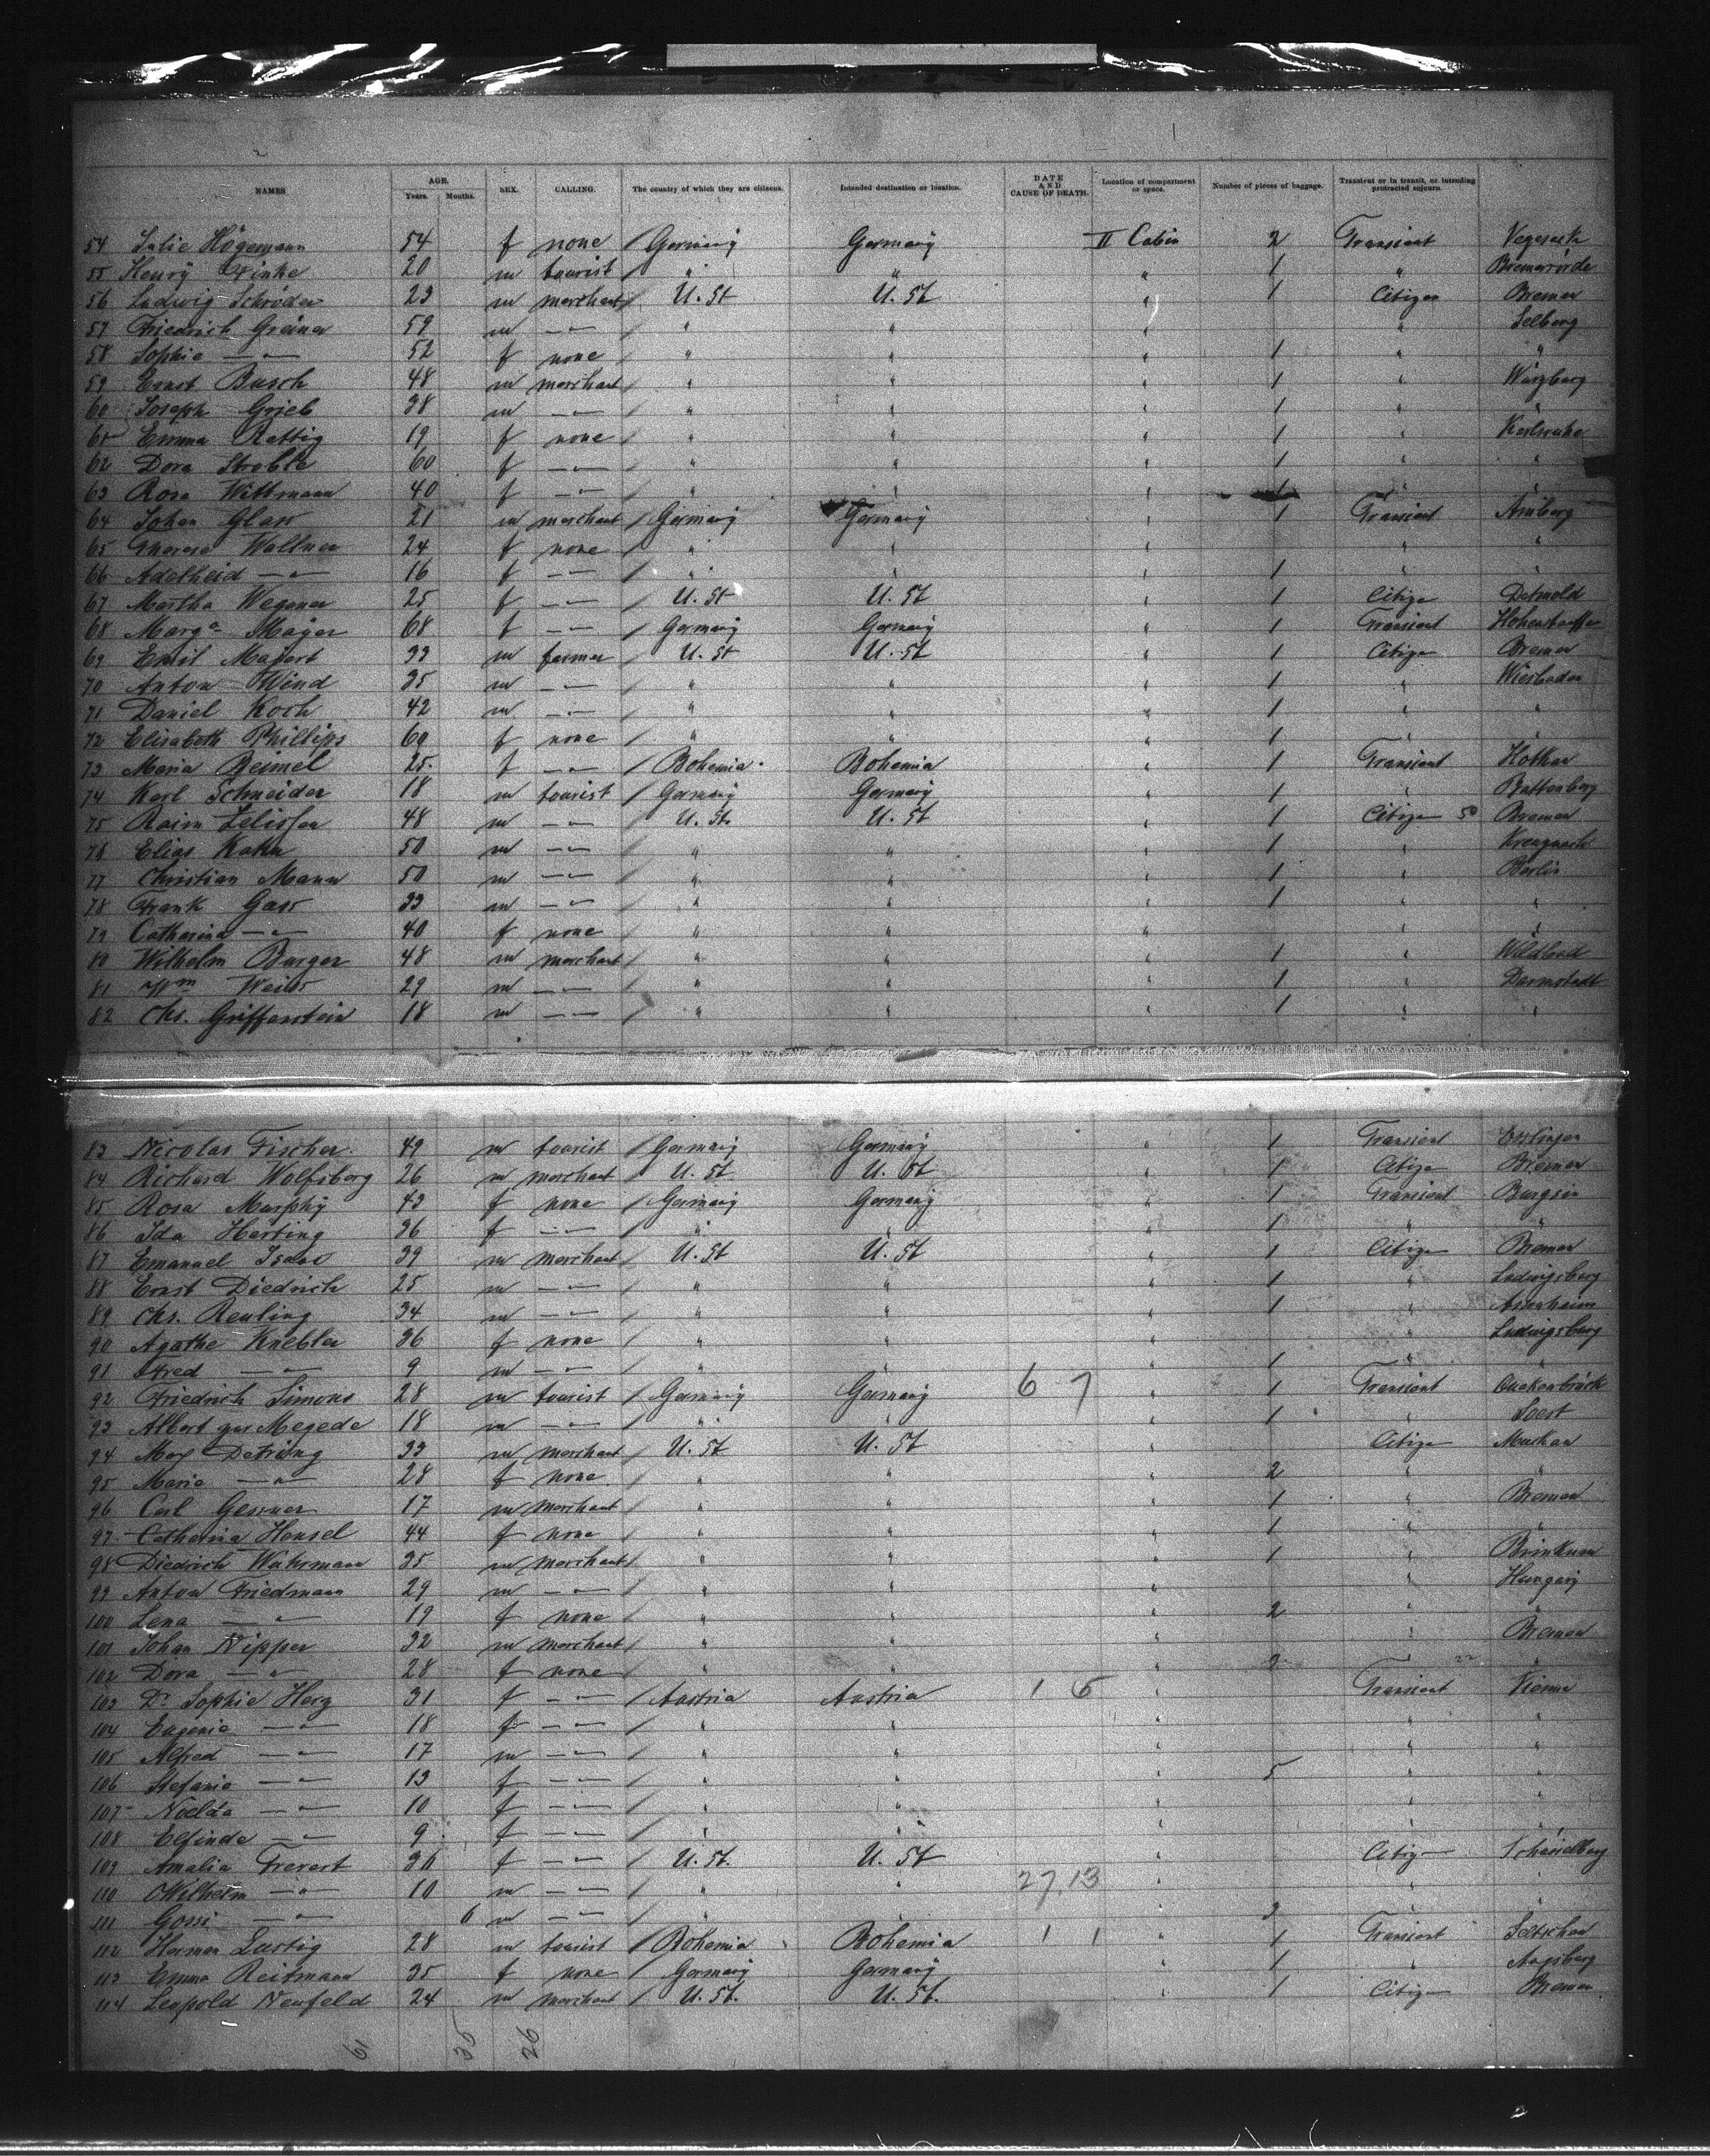 NAMES AGE. Years. Months. SEX. CALLING. The country of which they are citizens. Intended destination or location. DATE AND CAUSE OF DEATH. Location of compartment or space. Number of pieces of baggage. Transient or in transit, or intending protracted sojourn.
54 Julie Högemann 54 f none / Germany Germany II Cabin 2 Transient Vegesack
55 Henry Finke 20 m tourist / " " " 1 " Bremervörde
56 Ludwig Schröder 23 m merchant / U. St U. St " 1 Citizen Bremen
57 Friedrich Greiner 59 m — " — / " " " " Selberg
58 Sophie — " — 52 f none / " " " 1 " "
59 Ernst Busch 48 m merchant / " " " 1 " Würzburg
60 Joseph Grieb 38 m — " — / " " " 1 " "
61 Emma Rettig 19 f none / " " " 1 " Karlsruhe
62 Dora Stroble 60 f — " — / " " " 1 " "
63 Rosa Wittmann 40 f — " — / " " " 1 " "
64 Johan Glass 21 m merchant / Germany Germany " 1 Transient Amberg
65 Therese Wallner 24 f none / " " " " "
66 Adelheid — " — 16 f — " — / " " " 1 " "
67 Martha Wegener 25 f — " — / U. St U. St " 1 Citizen Detmold
68 Marga Mayer 68 f — " — / Germany Germany " 1 Transient
69 Emil Mapert 33 m farmer / U. St U. St " 1 Citizen Bremen
70 Anton Wind 35 m — " — / " " " 1 " Wiesbaden
71 Daniel Koch 42 m — " — / " " " 1 " "
72 Elisabeth Phillips 60 f none / " " " 1 " "
73 Maria Beimel 25 f — " — / Bohemia Bohemia " 1 Transient
74 Karl Schneider 18 m tourist / Germany Germany " 1 " Battenberg
75 48 m — " — / U. St. U. St " 1 Citizen 50 Bremen
76 Elias Kahn 50 m — " — / " " " 1 " Kreuznach
77 Christian Mann 50 m — " — / " " " 1 " Berlin
78 Frank Gass 33 m — " — / " " " 1 " "
79 Catharina — " — 40 f none / " " " " "
80 Wilhelm Burger 48 m merchant / " " " 1 " Wildbad
81 Wm Weiss 29 m — " — / " " " 1 " Darmstadt
82 Chs. Griffenstein 18 m — " — / " " " 1 " "
83 Nicolas Fischer 49 m tourist / Germany Germany " 1 Transient Esslingen
84 Richard Wolfsberg 26 m merchant / U. St. U. St " 1 Citizen Bremen
85 Rosa Murphy 43 f none / Germany Germany " 1 Transient Burgsin
86 Ida Herting 36 f — " — / " " " 1 " "
87 Emanuel Isaac 39 m merchant / U. St U. St " 1 Citizen Bremen
88 Ernst Diedrich 25 m — " — / " " " 1 " Ludwigsburg
89 Chs. Reuling 34 m — " — / " " " 1 " Assenheim
90 Agathe Knebler 36 f none / " " " " Ludwigsburg
91 Fred — " — 9 m — " — / " " " 1 " "
92 Friedrich Simons 28 m tourist / Germany Germany 6 7 " 1 Transient Quakenbrück
93 Albert zur Megede 18 m — " — / " " " 1 " Soest
94 Max Detring 33 m merchant / U. St U. St " Citizen
95 Marie — " — 28 f none / " " " 2 " "
96 Carl Gessner 17 m merchant / " " " 1 " Bremen
97 Catharina Hensel 44 f none / " " " 1 " "
98 Diedrich Wührmann 35 m merchant / " " " 1 " Brinkum
99 Anton Friedmann 29 m — " — / " " " " Hungary
100 Lena — " — 19 f none / " " " 2 " "
101 Johan Nipper 32 m merchant / " " " " Bremen
102 Dora — " — 28 f none / " " " 2 " "
103 Dr Sophie Herz 31 f — " — / Austria Austria 1 5 " Transient Vienna
104 Eugenie — " — 18 f — " — / " " " " "
105 Alfred — " — 17 m — " — / " " " " "
106 Stefanie — " — 13 f — " — / " " " 5 " "
107 — " — 10 f — " — / " " " " "
108 Elfinde — " — 9 f — " — / " " " " "
109 Amalia Frevert 36 f — " — / U. St. U. St " Citizen
110 Wilhelm — " — 10 m — " — / " " 27 13 " " "
111 Gossi — " — 6 m — " — / " " " 2 " "
112 Herman Lustig 28 m tourist / Bohemia Bohemia 1 1 " 1 Transient
113 Emma Reitmann 35 f none / Germany Germany " 1 " Augsburg
114 Leopold Neufeld 24 m merchant / U. St. U. St. " 1 Citizen Bremen
61 35 26